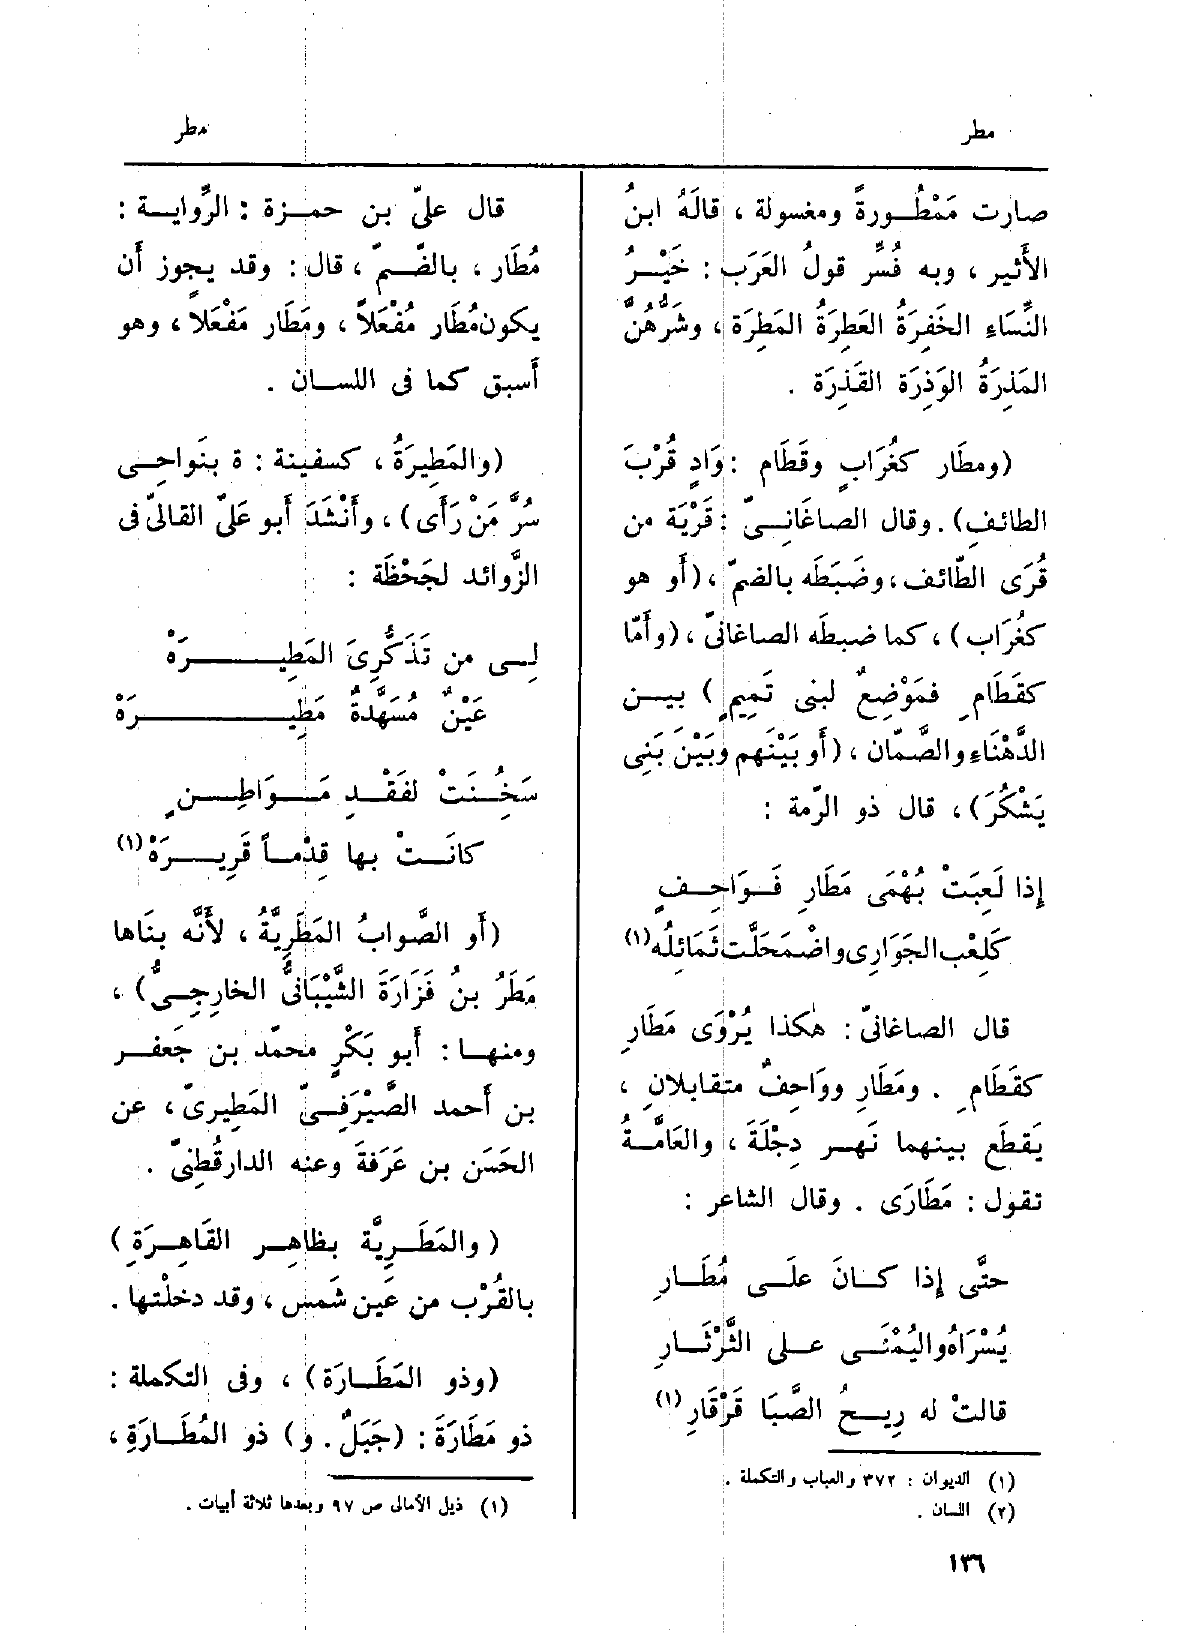 مطر
مطر
صارت مَمْطُورةً ومغسولة ، قالَهُ ابنُ
الأَثير ، وبه فُسِّر قولُ العَرَب : خَيْرُ
النِّسَاءِ الخَفِرَةُ العَطِرَةُ المَطِرَة ، وشَرُّهُنَّ
المَذِرَةُ الوَذِرَة القَذِرَة .
(ومطَار كغُرَابٍ وقَطَام : وَادٍ قُرْبَ
الطائفِ) . وقال الصاغَانِىّ : قَرْيَة من
قُرَى الطّائف ، وضَبَطَه بالضمّ ، (أَو هو
كغُرَاب) ، كما ضبطَه الصاغانىّ ، (وأَمّا
كقَطَامِ فمَوْضِعٌ لبنى تَمِيمٍ) بيــن
الدَّهْنَاءِ والصَّمّان ، (أَو بَيْنَهم وبَيْنَ بَنِى
يَشْكُرَ) ، قال ذو الرّمة :
إذا لَعِبَتْ بُهْمَى مَطَارِ فَوَاحِفٍ
كَلِعْب الجَوَارِى واضْمَحَلَّت ثَمَائلُه (١)
قال الصاغانىّ : هٰكذا يُرْوَى مَطَارِ
كقَطَامِ . ومَطَارِ ووَاحِفٌ متقابلانِ ،
يَقطَع بينهما نَهر دِجْلَةَ ، والعَامَّةُ
تقول : مَطَارَى . وقال الشاعر :
حتَّى إذا كَـانَ علَـى مُطَـارِ
يُسْرَاهُ واليُمْنَـى عـلى الثَّرْثَـارِ
قالتْ له رِيـحُ الصَّبَا قَرْقَارِ (١)
(١) الديوان : ٣٧٢ والعباب والتكملة .
(٢) اللسان .
قال علىّ بن حمـزة : الرِّوايـة :
مُطَار ، بالضَّـمّ ، قال : وقد يجوز أَن
يكون مُطَار مُفْعَلاً ، ومَطَار مَفْعَلاً ، وهو
أَسبق كما فى اللسـان .
(والمَطِيرَةُ ، كسفينة : ة بنَواحِـى
سُرَّ مَنْ رَأَى) ، وأَنْشَدَ أَبو عَلىّ القالىّ فى
الزّوائد لجَحْظَة :
لِـى من تَذَكُّرِىَ المَطِيـــرَهْ
عَيْنٌ مُسَهَّدةٌ مَطِيـــرَهْ
سَخُـنَتْ لفَقْـدِ مَـوَاطِـنٍ
كانَـتْ بها قِدْمـاً قَرِيـرَهْ (١)
(أَو الصَّوابُ المَطَرِيَّةُ ، لأَنَّه بنَاها
مَطَرُ بنُ فَزَارَةَ الشَّيْبَانىُّ الخارِجِـىُّ) ،
ومنهـا : أَبو بَكْرٍ محمّد بن جَعفـر
بن أَحمد الصَّيْرَفِـىّ المَطِيرىّ ، عن
الحَسَن بن عَرَفَةَ وعنه الدارقُطنِىّ .
(والمَطَـرِيَّة بظاهِـر القَاهِـرَةِ)
بالقُرْب من عَين شَمس ، وقد دخلْتها .
(وذو المَطَـارَة) ، وفى التكملة :
ذو مَطَارَةَ : (جَبَلٌ . و) ذو المُطَـارَةِ ،
(١) ذيل الأمالى ص ٩٧ وبعدها ثلاثة أبيات .
١٣٦